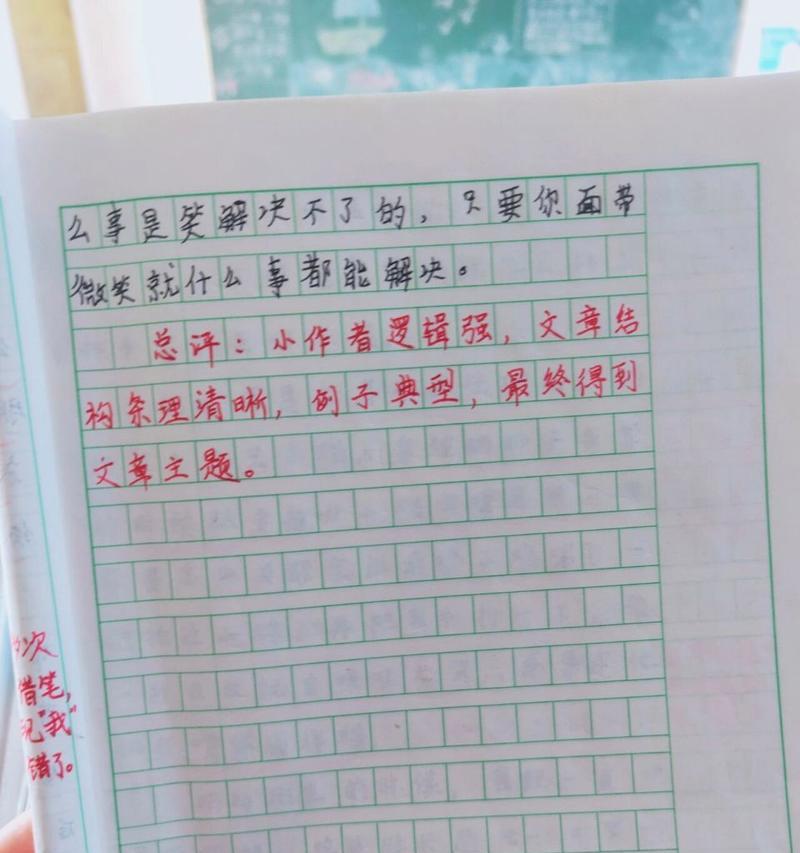 么事是笑解决不了的，只要你面带
微笑就什么事都能解决。
总评：小作者逻辑强，文章结
构条理清晰，例子典型，最终得到
文章主题。
次
借笔，
"我"
错了。